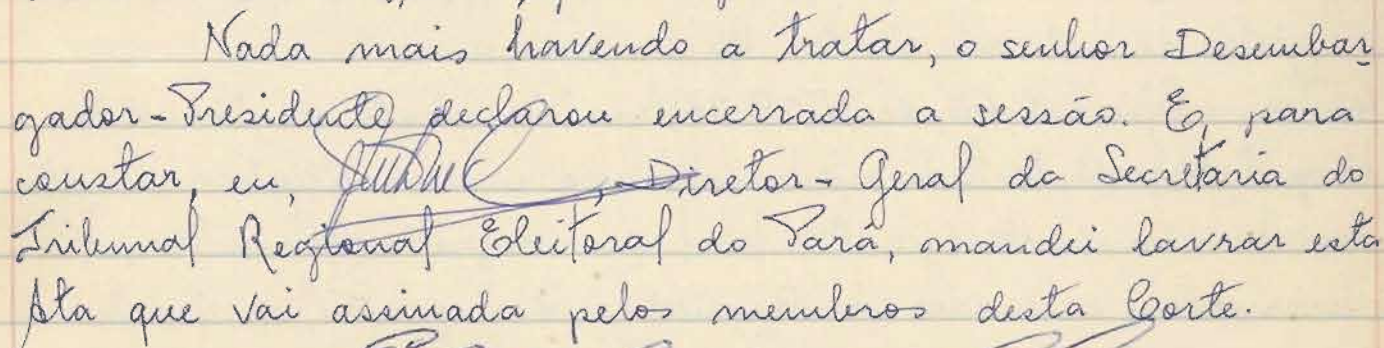 Nada mais havendo a tratar, o senhor Desembar-
gador-Presidente declarou encerrada a sessão. E, para
constar, eu, , Diretor-Geral da Secretaria do
Tribunal Regional Eleitoral do Pará, mandei lavrar esta
Ata que vai assinada pelos membros desta Corte.